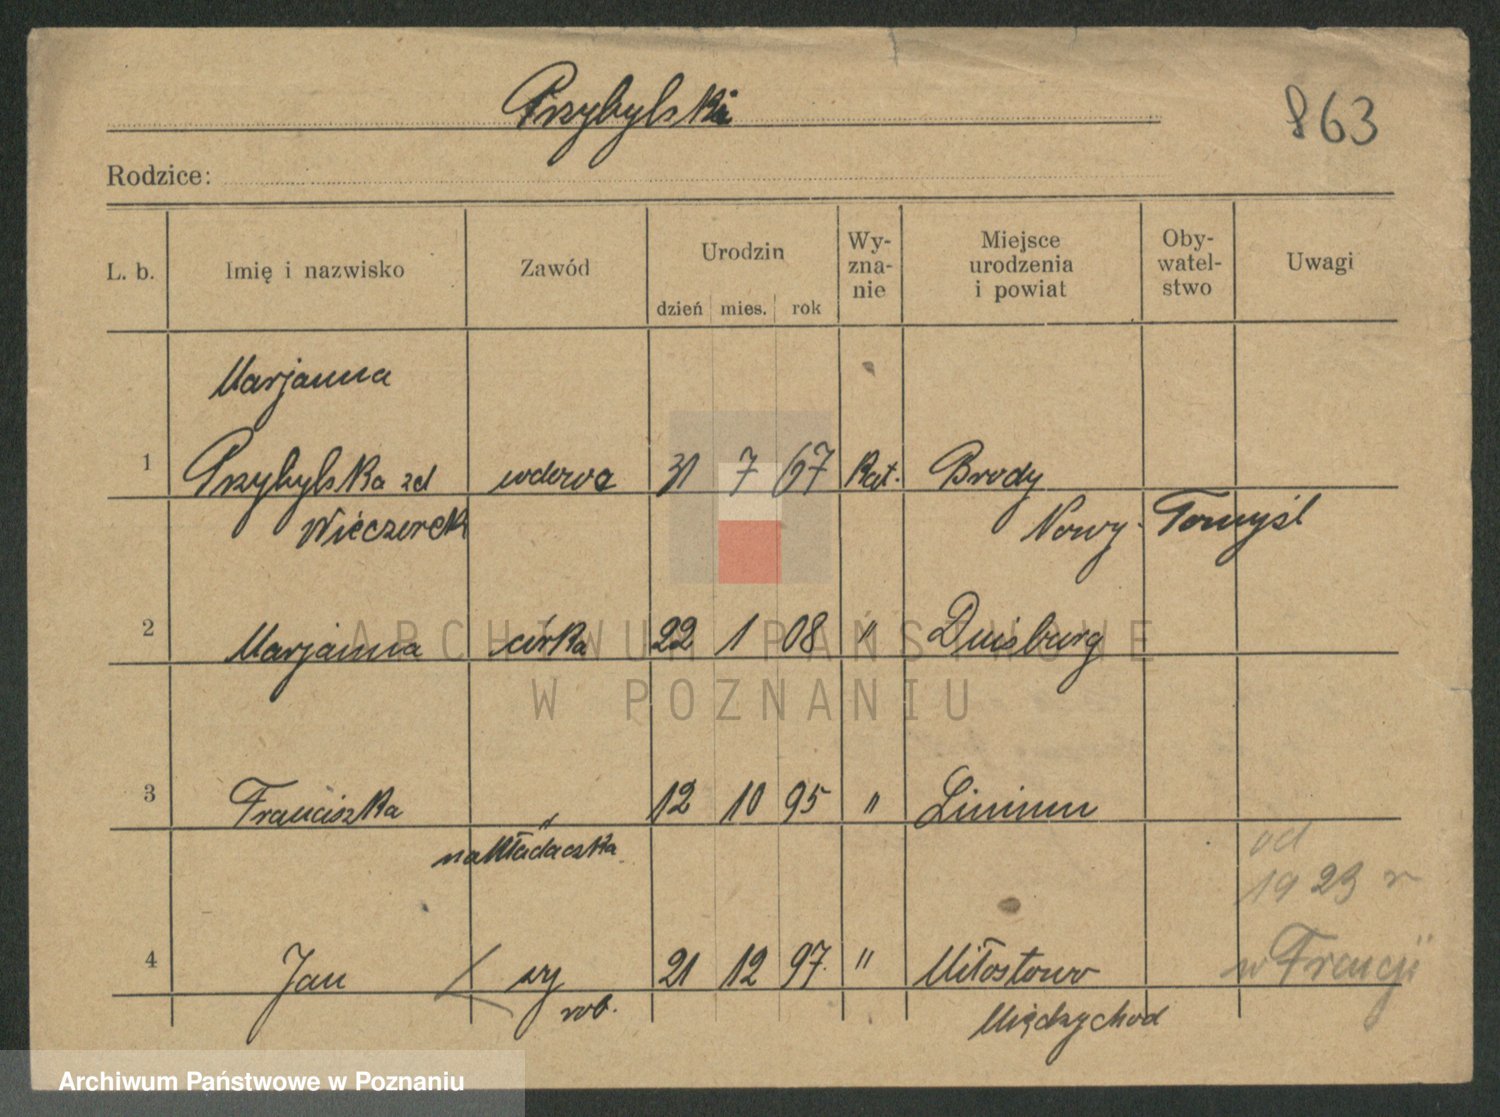 Przybylski
863
Rodzice:
L. b. Imię i nazwisko Zawód Urodzin dzień mies. rok Wy-zna-nie Miejsce urodzenia i powiat Oby-watel-stwo Uwagi
Marjanna
1 Przybylska zd wdowa 31 7 67 Kat. Brody
Wieczorek Nowy-Tomyśl
2 Marjanna córka 22 1 08 " Duisburg
3 Franciszka " 12 10 95 "
nakładaczka
od
1923 r
4 Jan sy 21 12 97. " Miłostowo
w Francji
rob. Międzychod
ARCHIWUM PAŃSTWOWE
W POZNANIU
Archiwum Państwowe w Poznaniu